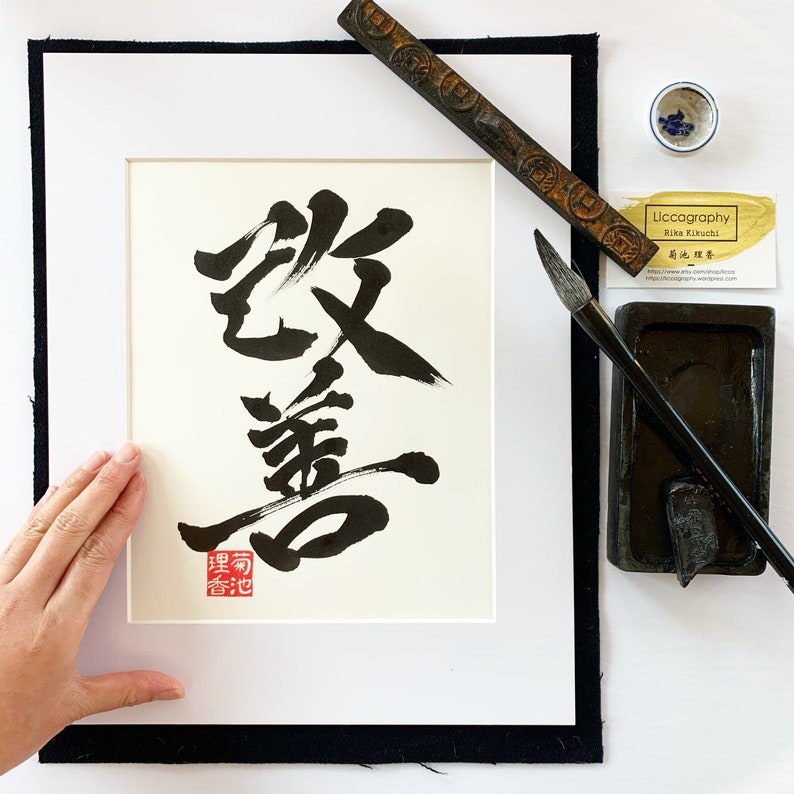 改
善
菊池
理香
Liccagraphy
Rika Kikuchi
菊池 理香
https://www.etsy.com/shop/licca
https://liccagraphy.wordpress.com